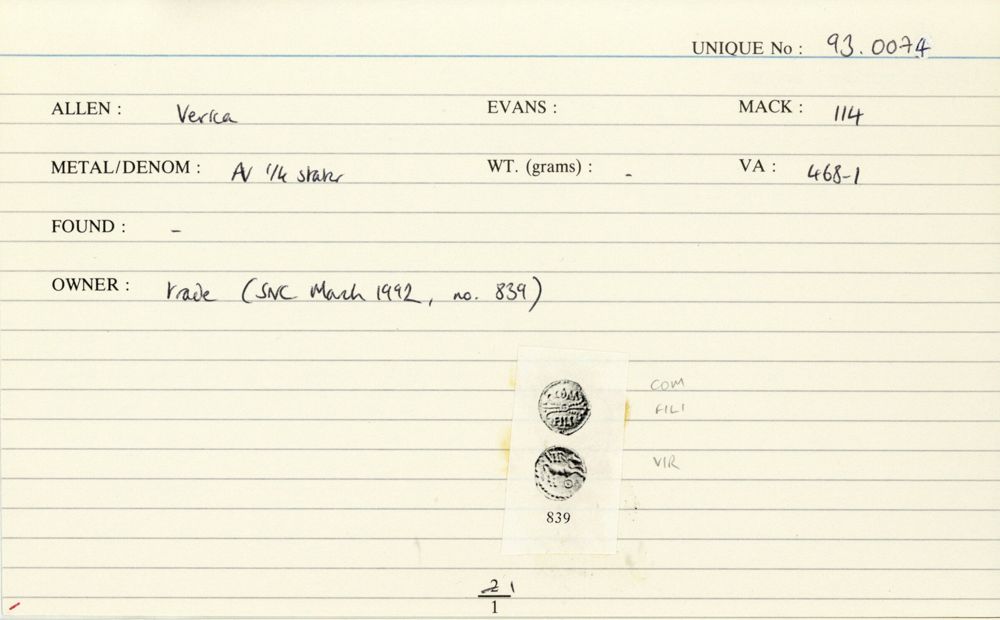 UNIQUE No : 93.0074
ALLEN : Verica EVANS : MACK : 114
METAL/DENOM : AV 1/4 stater WT. (grams) : - VA : 468-1
FOUND : -
OWNER : trade (SNC March 1992, no. 839)
COM
FILI
COM
FILI
VIR
VIR
839
2 1
1